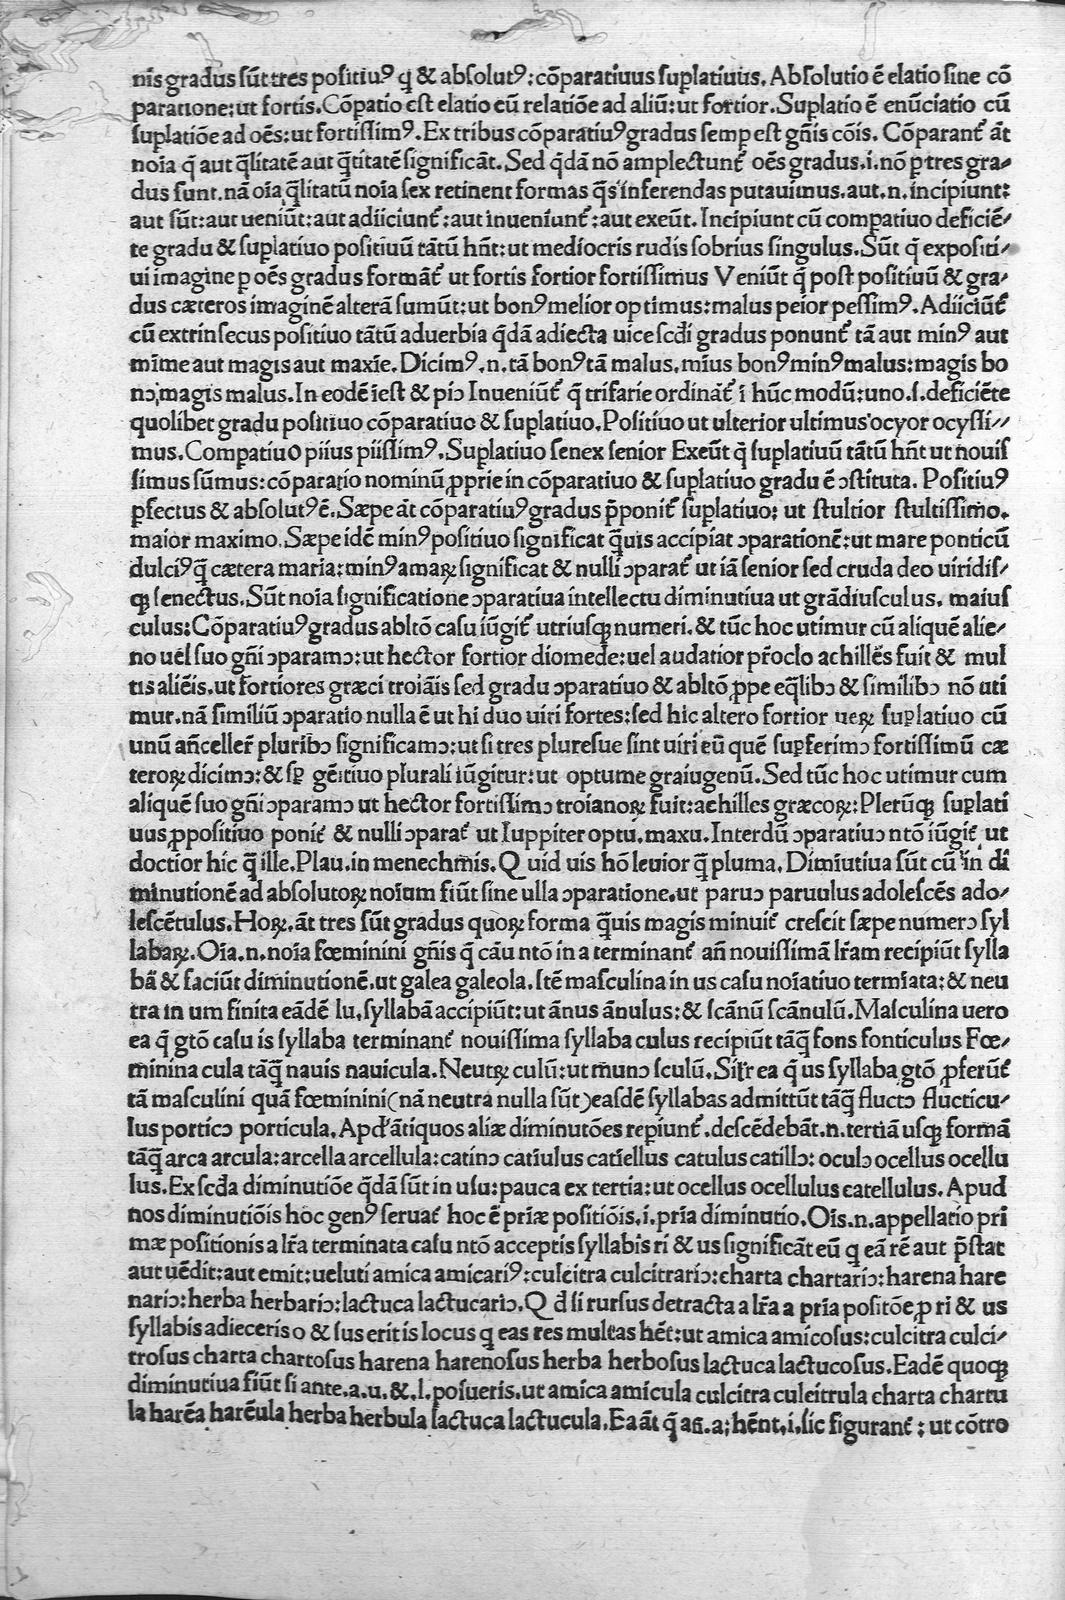 nis gradus sũt tres positiuꝰ q̇ & absolutꝰ: cõparatiuus suplatiuus. Absolutio ẽ elatio sine cõ
paratione: ut fortis. Cõpatio est elatio cũ relatiõe ad aliũ: ut fortior. Suplatio ẽ enũciatio cũ
suplatiõe ad oẽs: ut fortissimꝰ. Ex tribus cõparatiuꝰ gradus semp est gñis cõis. Cõparant᷑ ãt
noĩa q̃ aut q̃litatẽ aut q̃titatẽ significãt. Sed q̃dã nõ amplectunt᷑ oẽs gradus .i. nõ p tres gra⸗
dus sunt. nã oĩa q̃litatũ noĩa sex retinent formas q̃s inferendas putauimus. aut .n. incipiunt:
aut sũt: aut ueniũt: aut adiiciunt᷑: aut inueniunt᷑: aut exeũt. Incipiunt cũ compatiuo deficiẽ⸗
te gradu & suplatiuo positiuũ tãtũ hñt: ut mediocris rudis sobrius singulus. Sũt q̃ expositi⸗
ui imagine p oẽs gradus formãt᷑ ut fortis fortior fortissimus Veniũt q̃ post positiuũ & gra⸗
dus cæteros imaginẽ alterã sumũt: ut bonꝰ melior optimus: malus peior pessimꝰ. Adiiciũt᷑
cũ extrinsecus positiuo tãtũ aduerbia q̃dã adiecta uice scd̃i gradus ponunt᷑ tã aut minꝰ aut
mĩme aut magis aut maxĩe. Dicimꝰ .n. tã bonꝰ tã malus. mĩus bonꝰ minꝰ malus: magis bo
nꝯ magis malus. In eodẽ ĩest & piꝯ Inueniũt᷑ q̃ trifarie ordinãt᷑ ĩ hũc modũ: uno .s. deficiẽte
quolibet gradu positiuo cõparatiuo & suplatiuo. Positiuo ut ulterior ultimus ocyor ocyssi⸗
mus. Compatiuo piius piissimꝰ. Suplatiuo senex senior Exeũt q̃ suplatiuũ tãtũ hñt ut nouis
simus sũmus: cõparatio nominũ ꝓprie in cõparatiuo & suplatiuo gradu ẽ ꝯstituta. Positiuꝰ
pfectus & absolutꝰ ẽ. Sæpe ãt cõparatiuꝰ gradus p̃ponit᷑ suplatiuo: ut stultior stultissimo.
maior maximo. Sæpe idẽ minꝰ positiuo significat q̃uis accipiat ꝯparationẽ: ut mare ponticũ
dulciꝰ q̃ cætera maria: minꝰ amaꝝ significat & nulli ꝯparat᷑ ut iã senior sed cruda deo uiridis⸗
qꝫ senectus. Sũt noĩa significatione ꝯparatiua intellectu diminutiua ut grãdiusculus. maius
culus: Cõparatiuꝰ gradus abltõ casu iũgit᷑ utriusqꝫ numeri. & tũc hoc utimur cũ aliquẽ alie⸗
no uel suo gñi ꝯparamꝯ: ut hector fortior diomede: uel audatior p̃oclo achilles fuit & mul
tis aliẽis. ut fortiores græci troiãis sed gradu ꝯparatiuo & abltõ ꝓpe eq̃libꝯ & similibꝯ nõ uti
mur. nã similiũ ꝯparatio nulla ẽ ut hi duo uiri fortes: sed hic altero fortior ueꝝ suplatiuo cũ
unũ añceller̃ pluribꝯ significamꝯ: ut si tres pluresue sint uiri eũ quẽ supferimꝯ fortissimũ cæ
teroꝝ dicimꝯ: & sp̱ gẽitiuo plurali iũgitur: ut optume graiugenũ. Sed tũc hoc utimur cum
aliquẽ suo gñi ꝯparamꝯ ut hector fortissimꝯ troianoꝝ fuit: achilles græcoꝝ: Plerũqꝫ suplati
uus ꝓ positiuo ponit᷑ & nulli ꝯparat᷑ ut Iuppiter optu. maxu. Interdũ ꝯparatiuꝯ ntõ iũgit᷑ ut
doctior hic q̃ ille. Plau. in menechmis. Quid uis hõ leuior q̃ pluma. Dimiutiua sũt cũ in di
minutionẽ ad absolutoꝝ noĩum fiũt sine ulla ꝯparatione. ut paruꝯ paruulus adolescẽs ado⸗
lescẽtulus. Hoꝝ. ãt tres sũt gradus quoꝝ forma q̃uis magis minuit᷑ crescit sæpe numerꝯ syl
labaꝝ. Oĩa .n. noĩa fœminini gñis q̃ cãu ntõ in a terminant᷑ añ nouissimã lr̃am recipiũt sylla
bã & faciũt diminutionẽ. ut galea galeola. ĩtẽ masculina in us casu noĩatiuo termĩata: & neu
tra in um finita eãdẽ lu. syllabã accipiũt: ut ãnus ãnulus: & scãnũ scãnulũ. Masculina uero
ea q̃ gtõ casu is syllaba terminant᷑ nouissima syllaba culus recipiũt tãq̃ fons fonticulus Fœ⸗
minina cula tãq̃ nauis nauicula. Neutꝝ culũ: ut munꝯ sculũ. Silr̃ ea q̃ us syllaba gtõ ꝓferũt᷑
tã masculini quã fœminini (nã neutra nulla sũt) easdẽ syllabas admittũt tãq̃ fluctꝯ flucticu⸗
lus porticꝯ porticula. Apd̃ ãtiquos aliæ diminutões repiunt᷑. descẽdebãt .n. tertiã usqꝫ formã
tãq̃ arca arcula: arcella arcellula: catinꝯ catiulus catiellus catulus catillꝯ: oculꝯ ocellus ocellu
lus. Ex scd̃a diminutiõe q̃dã sũt in usu: pauca ex tertia: ut ocellus ocellulus catellulus. Apud
nos diminutiõis hoc genꝰ seruat᷑ hoc ẽ priæ positiõis .i. pria diminutio. Ois .n. appellatio pri
mæ positionis a lr̃a terminata casu ntõ acceptis syllabis ri & us significãt eũ q eã rẽ aut p̃stat
aut uẽdit: aut emit: ueluti amica amicariꝰ: culcitra culcitrariꝯ: charta chartariꝯ: harena hare
nariꝯ: herba herbariꝯ: lactuca lactucariꝯ. Qd̃ si rursus detracta a lr̃a a pria positõe ꝓ ri & us
syllabis adieceris o & sus erit is locus q̇ eas res multas hẽt: ut amica amicosus: culcitra culci⸗
trosus charta chartosus harena harenosus herba herbosus lactuca lactucosus. Eadẽ quoqꝫ
diminutiua fiũt si ante .a. u. & .l. posueris. ut amica amicula culcitra culcitrula charta chartu
la harẽa harẽula herba herbula lactuca lactucula. Ea ãt q̃ añ .a; hẽnt. i. sic figurant᷑: ut cõtro